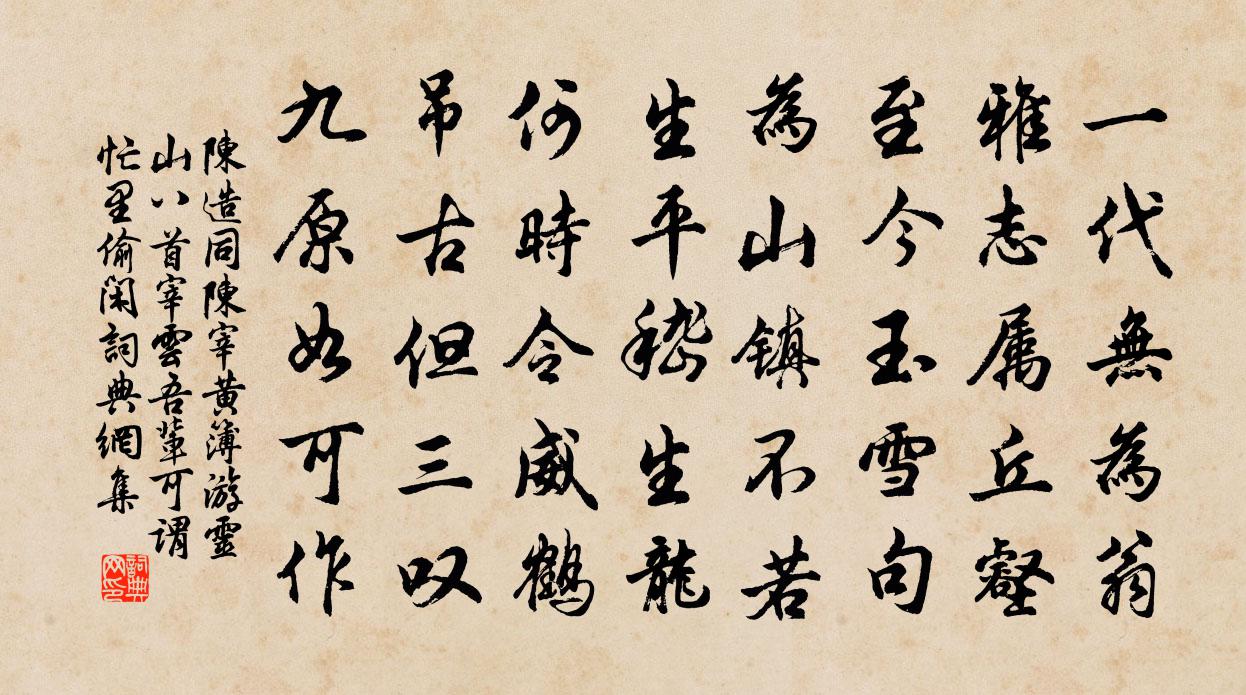 一代無為翁
雅志属丘壑
至今玉雪句
為山鎮不若
生平嵇生龍
何時令威鶴
吊古但三叹
九原如可作
陳造同陳宰黄簿游靈
山八首宰雲吾輩可謂
忙里偷閑詞典網集
詞典网印